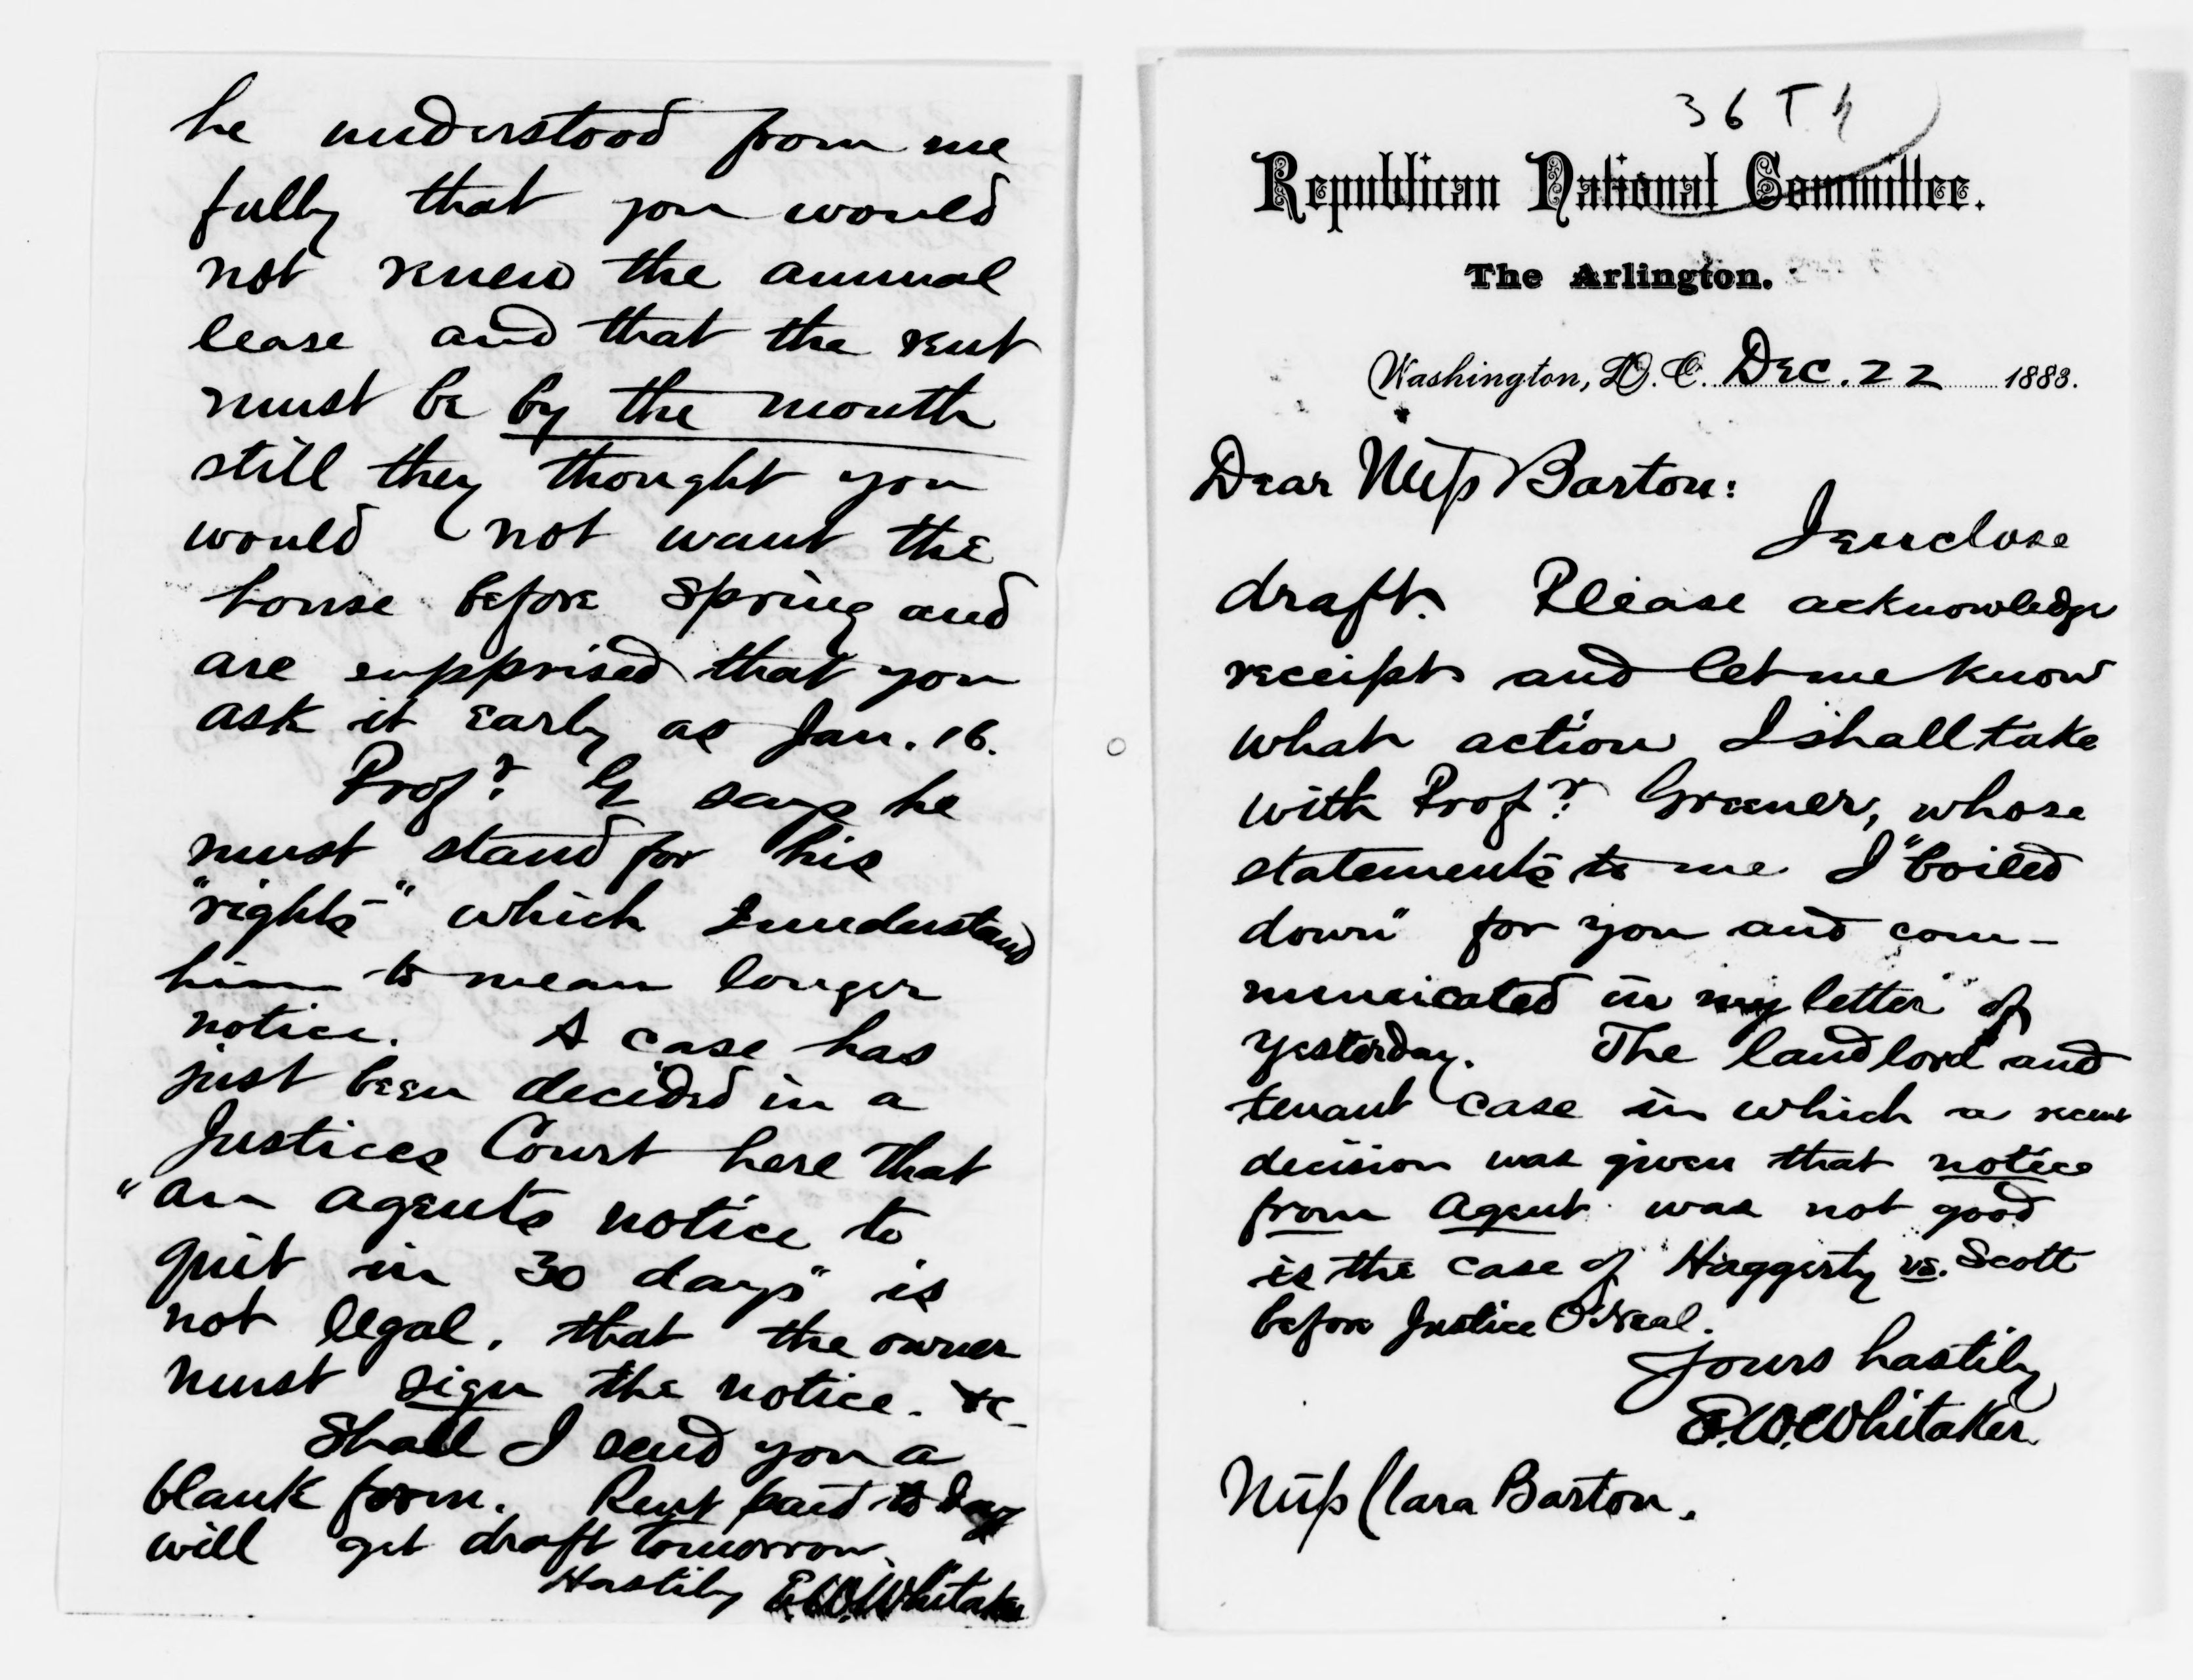 he understood from me
fully that you would
not renew the annual
lease and that the rent
must be by the month
still they thought you
would not want the
house before spring and
are supprised that you
ask it early as Jan. 16.
Profr. G says he
must stand for his
"rights" which I understand
him to mean longer
notice. A case has
just been decided in a
Justices Court here that
"an agents notice to
quit in 30 days" is
not legal, that the owner
must sign the notice. &c-
Shall I send you a
blank form. Rent paid to day
will get draft tomorrow.
Hastily E.W. Whitaker
36 T
Republican National Committee.
The Arlington.
Washington, D.C. Dec. 22 1883.
Dear Miss Barton:
I enclose
draft. Please acknowledge
receipt and let me know
what action I shall take
with Profr. Greener, whose
statements to me I "boiled
down" for you and com-
municated in my letter of
yesterday. The landlord and
tenant case in which a recent
decision was given that notice
from agent was not good
is the case of Haggerty vs. Scott
before Justice O'Neal.
Yours hastily
E.W. Whitaker.
Miss Clara Barton.